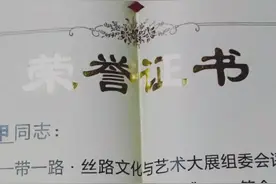 荣誉证书
同志：
一带一路·丝路文化与艺术大展组委会